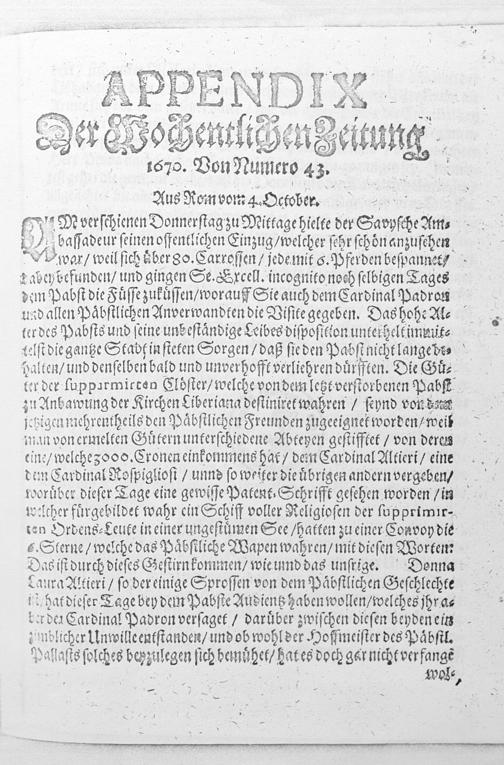 APPENDIX
Der Wochentlichen Zeitung
1670. Von Numero 43.
Aus Rom vom 4. October.
AM verschienen Donnerstag zu Mittage hielte der Savysche Am-
bassadeur seinen offentlichen Einzug / welcher sehr schön anzusehen
war / weil sich über 80. Carrossen / jede mit 6. Pferden bespannet /
dabey befunden / und gingen Se. Excell. incognito noch selbigen Tages
dem Pabst die Füsse zuküssen / worauff Sie auch dem Cardinal Padron
und allen Päbstlichen Anverwandten die Visite gegeben. Das hohe Al-
ter des Pabsts und seine unbeständige Leibes disposition unterhelt immit-
telst die gantze Stadt in steten Sorgen / daß sie den Pabst nicht lange be-
halten / und denselben bald und unverhofft verliehren dürfften. Die Gü-
ter der supparmirten Clöster / welche von dem letzt verstorbenen Pabst
zu Anbawung der Kirchen Liberiana destiniret wahren / seynd von dem
jetzigen mehrentheils den Päbstlichen Freunden zugeeignet worden / weil
man von ermelten Gütern unterschiedene Abteyen gestifftet / von deren
eine / welche 3000. Cronen einkommens hat / dem Cardinal Altieri / eine
dem Cardinal Rospigliosi / unnd so weiter die übrigen andern vergeben /
worüber dieser Tage eine gewisse Patent-Schrifft gesehen worden / in
welcher fürgebildet wahr ein Schiff voller Religiosen der supprimir-
ten Ordens-Leute in einer ungestümen See / hatten zu einer Convoy die
6. Sterne / welche das Päbstliche Wapen wahren / mit diesen Worten:
Das ist durch dieses Gestirn kommen / wie unnd das unsrige. Donna
Laura Altieri / so der einige Sprossen von dem Päbstlichen Geschlechte
ist / hat dieser Tage bey dem Pabste Audientz haben wollen / welches jhr a-
ber der Cardinal Padron versaget / darüber zwischen diesen beyden ein
zimblicher Unwille entstanden / und ob wohl der Hoffmeister des Päbstl.
Pallasts solches beyzulegen sich bemühet / hat es doch gar nicht verfangē
wol-